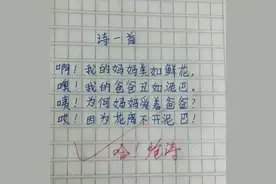 诗一首
啊！我的妈妈美如鲜花，
噢！我的爸爸丑如泥巴。
咦！为何妈妈爱着爸爸？
哎！因为花离不开泥巴！
哈！